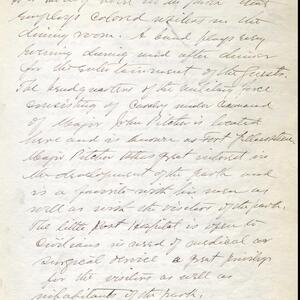 hotel in the park that
employs colored waiters in the
dining room. A band plays every
evening during and after dinner
for the entertainment of the guests.
The headquarters of the military force
consisting of Cavalry under command
of Major John Pitcher is located
here and is known as Fort Yellowstone
Major Pitcher takes great interest in
the development of the park and
is a favorite with his men as
well as with the visitors of the park.
The little Post Hospital is open to
Civilians in need of medical or
surgical service a great privilege
for the visitors as well as
inhabitants of the park.